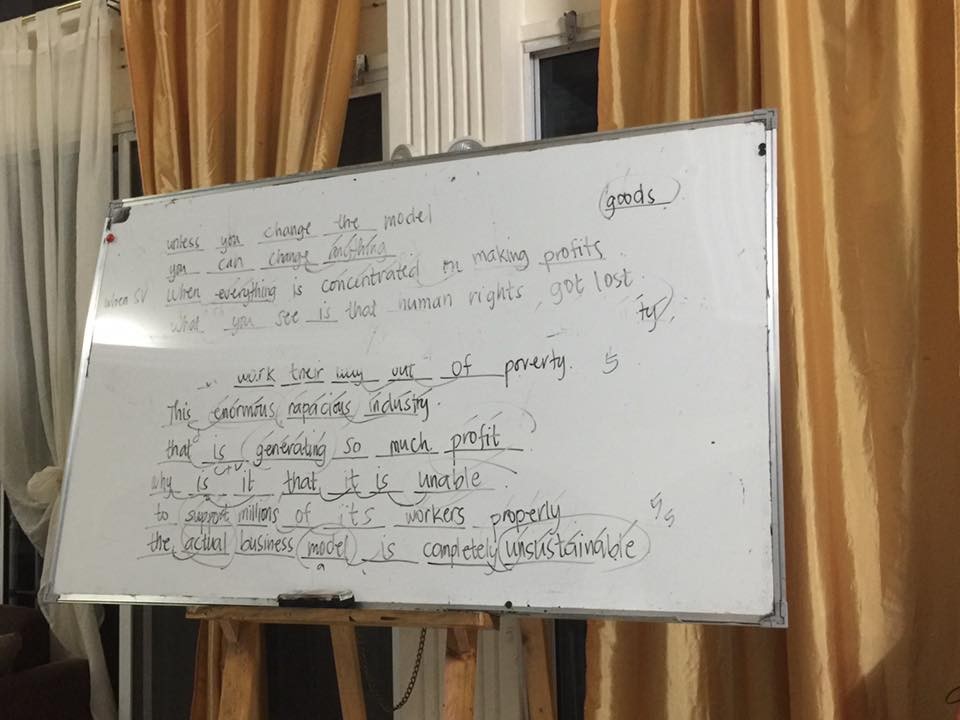 goods
unless you change the model
you can change anything
When everything is concentrated on making profits
when SV
What you see is that human rights got lost
ty
work their way out of poverty. 5
This enormous rapacious industry.
that is generating so much profit
c+v
why is it that it is unable
to support millions of its workers properly
55
the actual business model is completely unsustainable
a